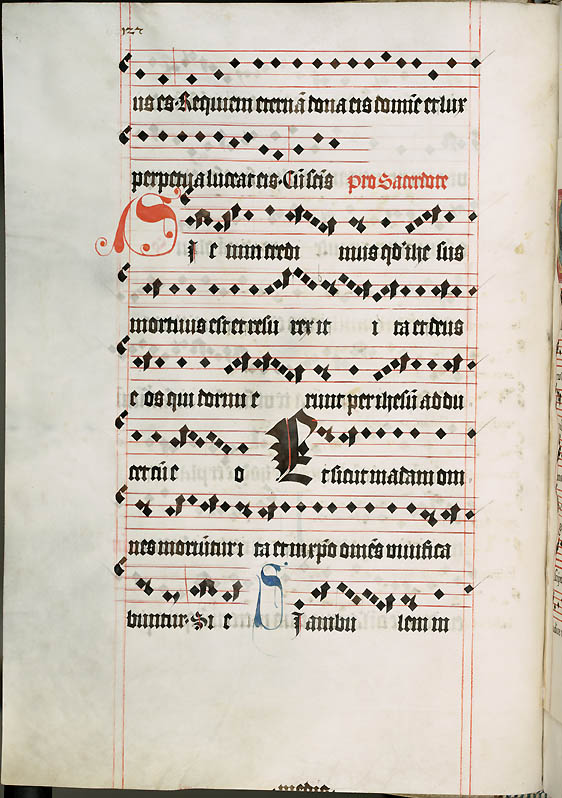 127
us es. Requiem eternā dona eis domīe et lux
perpetua luceat eis. Cū scīs pro Sacerdote
SI e nim credi mus qd' ihe sus
mortuus est et resu rex it i ta et deus
e os qui dormi e runt per ihesū ad du
cet cū e o Et sicut in adam om
nes moriūtur i ta et in xp̄o om̄es vivifica
buntur. Si e SI ambu lem in
medio